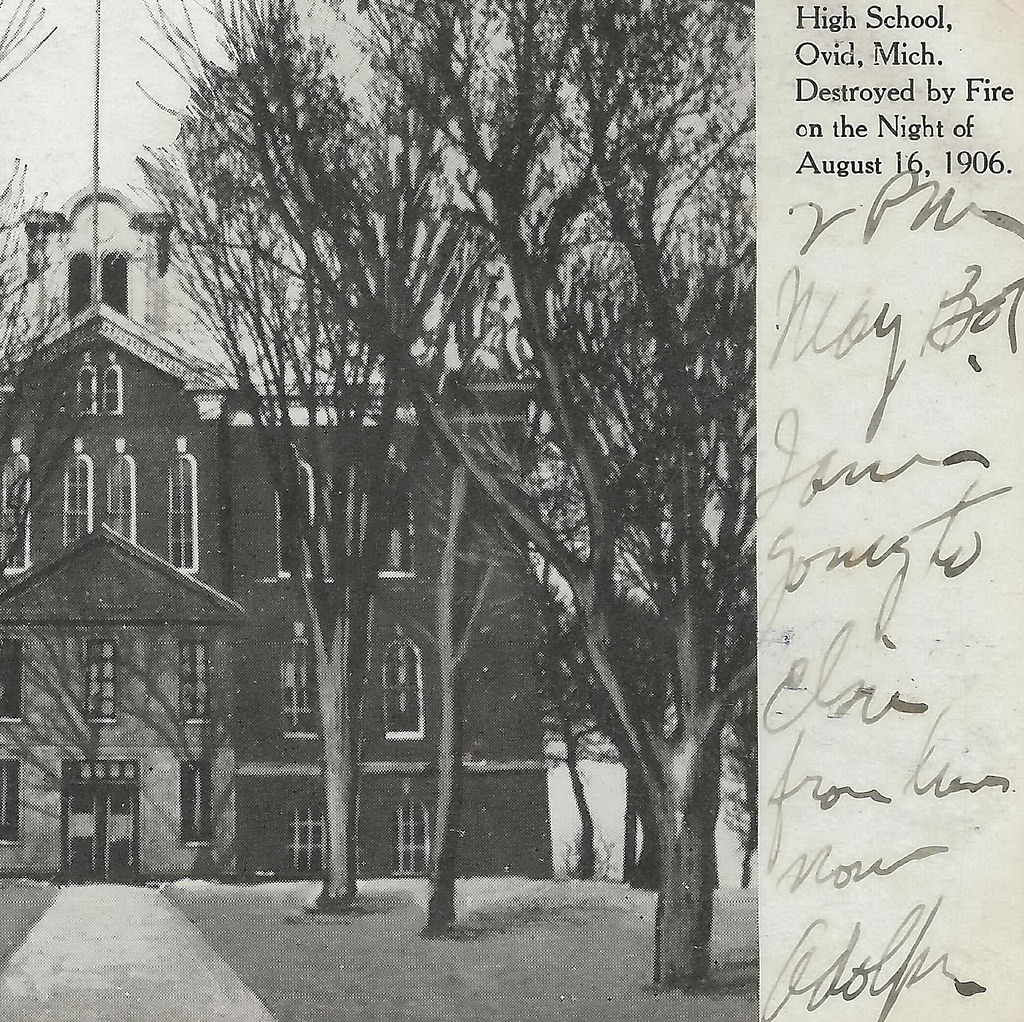 High School,
Ovid, Mich.
Destroyed by Fire
on the Night of
August 16, 1906.
2 PM
May
going to
Elsie
from here
now
Adolph